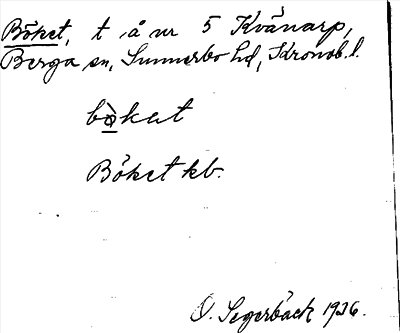 Böket, t å nr 5 Kvänarp,
Berga sn, Sunnerbo hd, Kronob. l.
bö̀kat
Böket kb.
O. Segerbäck 1936.